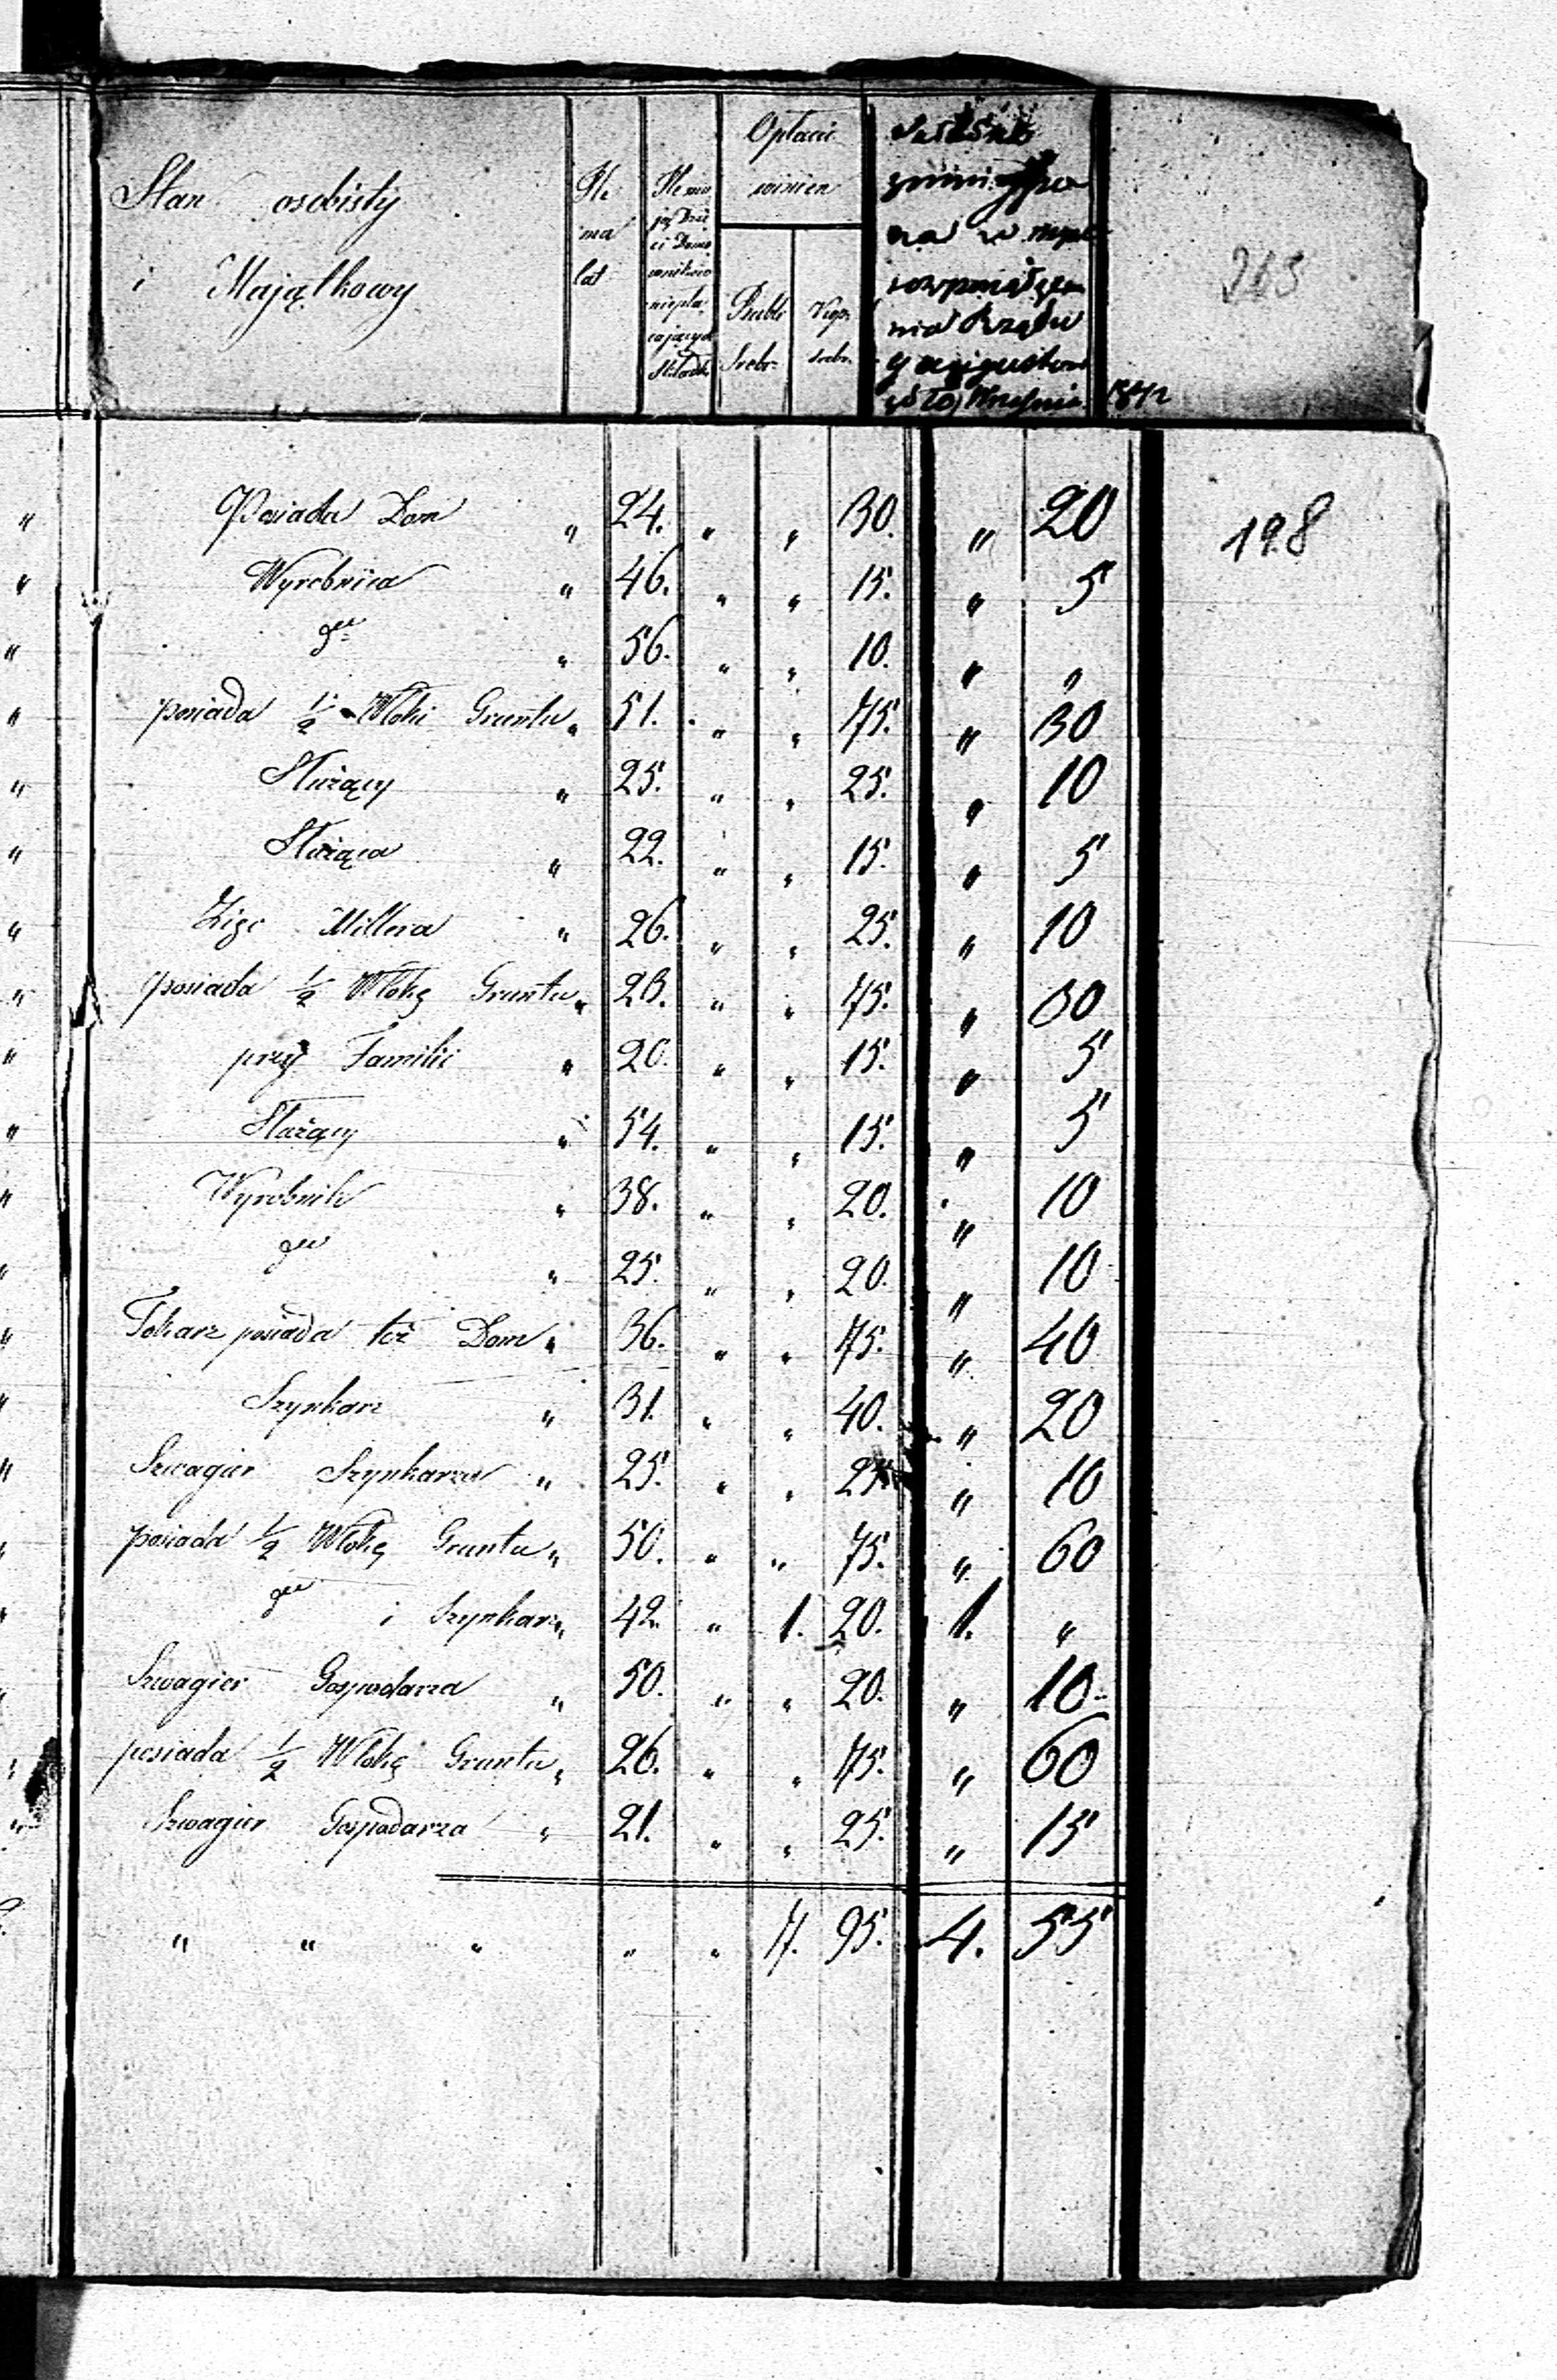 Stan osobisty
i Majątkowy
Ile
ma
lat
Ile ma
ją Dzie
ci
niepła
cących
Opłacić
winien
Rubli
Srebr.
Kop.
srebr.
na w
nia Rządu
Września 1842
265
198
Posiada Dom " 24. " " 30. " 20
Wyrobnica " 46. " " 15. " 5
" 56. " " 10. " "
posiada 1/2 Włoki Gruntu " 51. " " 75. " 30
Służący " 25. " " 25. " 10
Służąca " 22. " " 15. " 5
Millera " 26. " " 25. " 10
posiada 1/2 Włokę Gruntu " 23. " " 75. " 60
przy Familii " 20. " " 15. " 5
Służący " 54. " " 15. " 5
Wyrobnik " 38. " " 20. " 10
" 25. " " 20. " 10
Tokarz posiada też Dom " 36. " " 75. " 40
Szynkarz " 31. " " 40. " 20
Szwagier Szynkarza " 25. " " 25. " 10
posiada 1/2 Włokę Gruntu " 50. " " 75. " 60
i Szynkarz " 42. " 1. 20. 1. "
Szwagier Gospodarza " 50. " " 20. " 10
posiada 1/2 Włokę Gruntu " 26. " " 75. " 60
Szwagier Gospodarza " 21. " " 25. " 15
" " " " " 7. 95. 4. 55